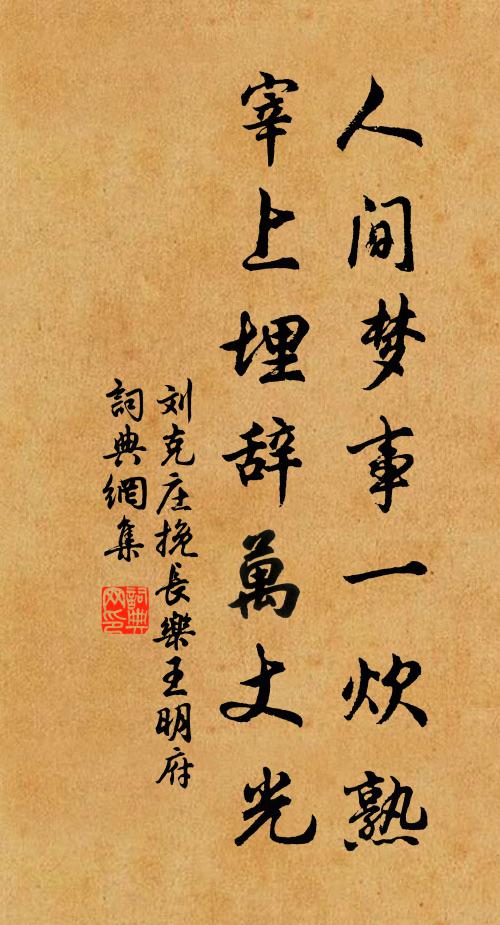 人间梦事一炊熟
宰上埋辞萬丈光
刘克庄挽長樂王明府
詞典網集
詞典网印